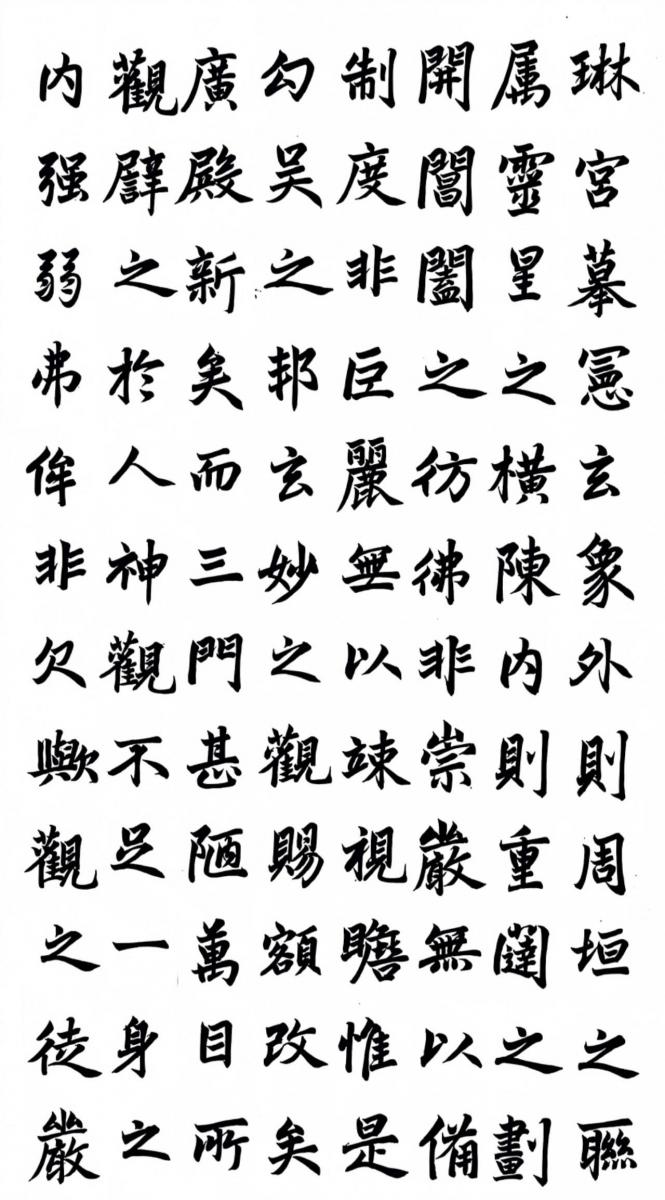 琳宮摹憲玄象外則周垣之聯
属靈星之橫陳内則重闥之劃
開閶闔之彷彿非崇嚴無以備
制度非巨麗無以竦視瞻惟是
勾吴之邦玄妙之觀賜額改矣
廣殿新矣而三門甚陋萬目所
觀譬之於人神觀不足一身之
内强弱弗侔非欠歟觀之徒嚴